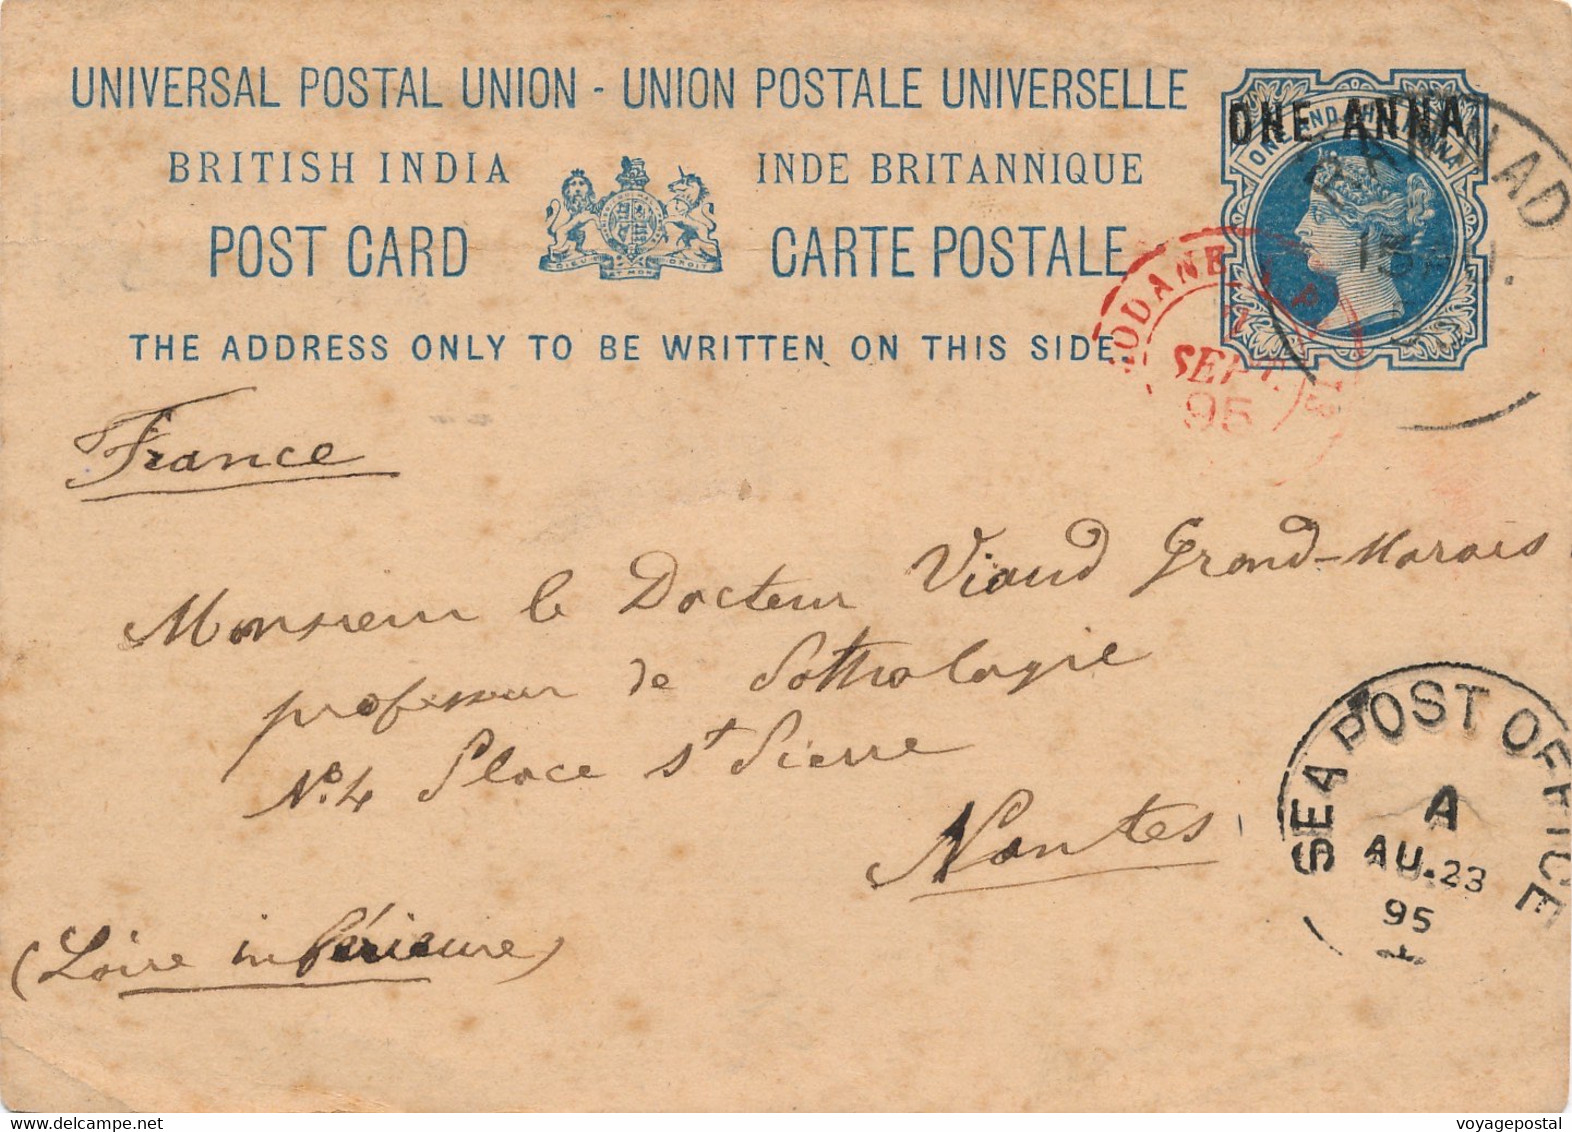 UNIVERSAL POSTAL UNION - UNION POSTALE UNIVERSELLE
BRITISH INDIA INDE BRITANNIQUE
POST CARD CARTE POSTALE
THE ADDRESS ONLY TO BE WRITTEN ON THIS SIDE.
ONE ANNA
DIEU ET MON DROIT
15 AU.
MODANE
SEPT.
95
France
Monsieur le Docteur Viaud Grand-Marais
professeur de Pathologie
No. 4 Place St Pierre
Nantes
(Loire inférieure)
SEA POST OFFICE
A
AU.23
95
voyagepostal